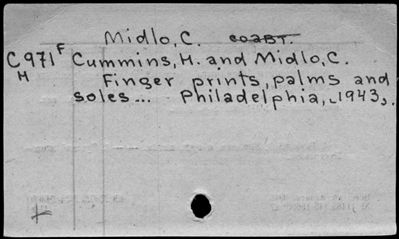 Midlo, C. coaut.
C971F Cummins, H. and Midlo, C.
H Finger prints, palms and
soles... Philadelphia, 1943.